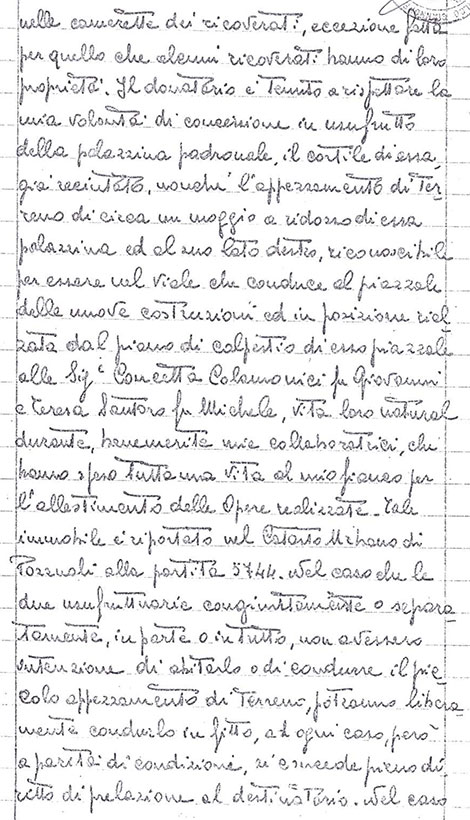 nelle camerette dei ricoverati, eccezione fatta
per quello che alcuni ricoverati hanno di loro
proprietà. Il donatario è tenuto a rispettare la
mia volontà di concessione in usufrutto
della palazzina padronale, il cortile di essa,
già recintato, nonché l'appezzamento di Ter-
reno di circa un moggio a ridosso di essa
palazzina ed al suo lato destro, riconoscibile
per essere nel viale che conduce al piazzale
delle nuove costruzioni ed in posizione rial-
zata dal piano di calpestio di esso piazzale
alle Sig.e Concetta Colamonici fu Giovanni
e Teresa Santoro fu Michele, vita loro natural
durante, benemerite mie collaboratrici, che
hanno speso tutta una vita al mio fianco per
l'allestimento delle Opere realizzate. Tale
immobile è riportato nel Catasto Urbano di
Pozzuoli alla partita 5744. Nel caso che le
due usufruttuarie congiuntamente o separa-
tamente, in parte o in tutto, non avessero
intenzione di abitarlo o di condurre il pic-
colo appezzamento di Terreno, potranno libera-
mente condurlo in fitto, ad ogni caso, però
a parità di condizioni, si concede pieno di-
ritto di prelazione al destinatario. Nel caso